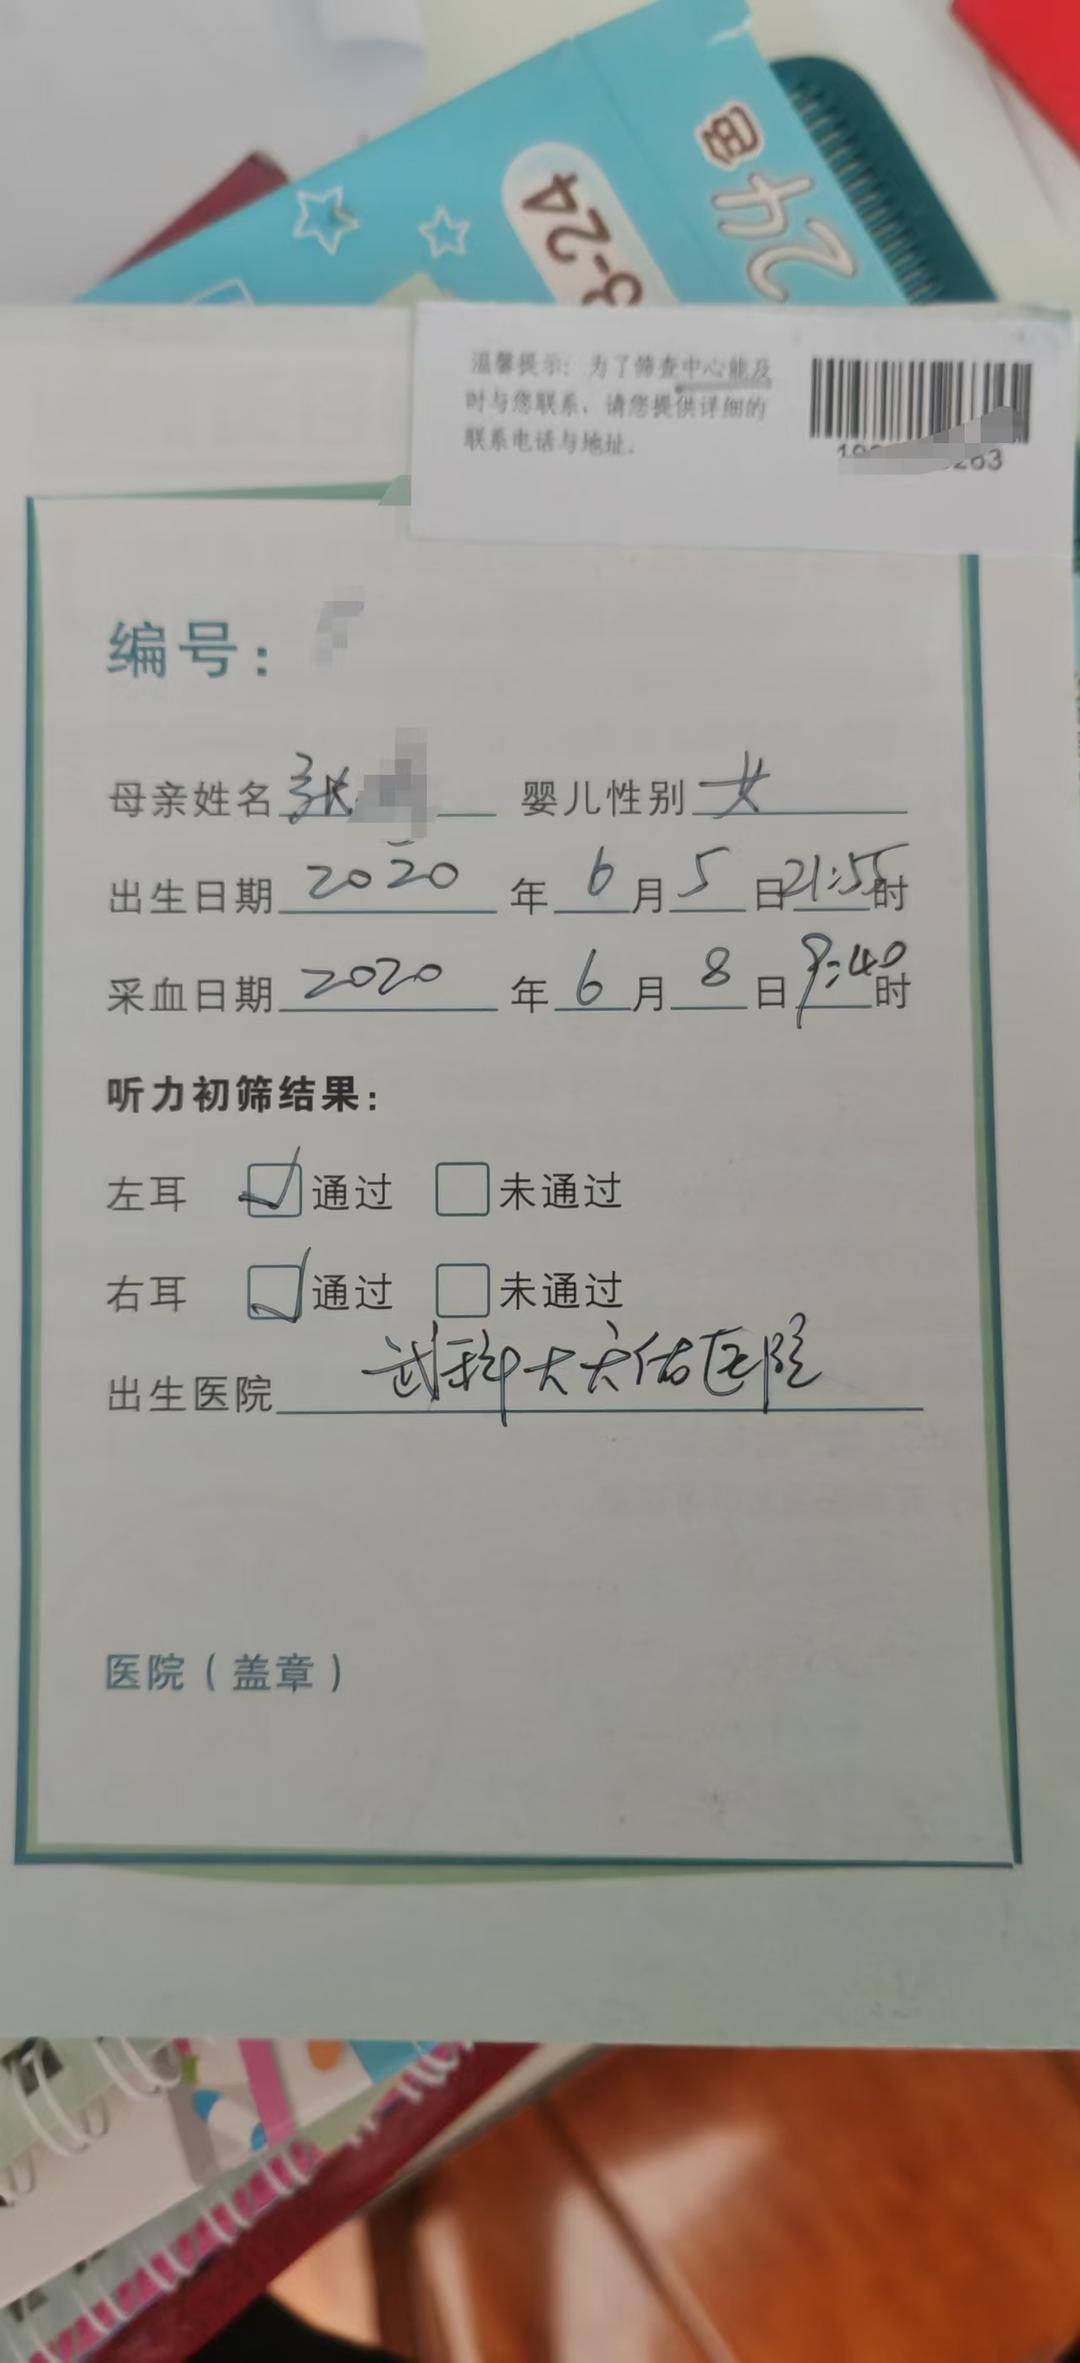 24色
3-24
温馨提示：为了筛查中心能及
时与您联系，请您提供详细的
联系电话与地址.
编号：
母亲姓名 张 婴儿性别 女
出生日期 2020 年 6 月 5 日 21:55 时
采血日期 2020 年 6 月 8 日 9:40 时
听力初筛结果：
左耳 通过 未通过
右耳 通过 未通过
出生医院 武科大天佑医院
医院（盖章）